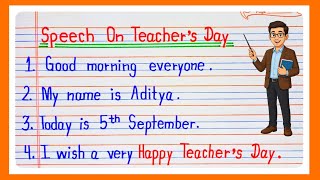 Speech On Teacher's Day
1. Good morning everyone.
2. My name is Aditya.
3. Today is 5th September.
4. I wish a very Happy Teacher's Day.